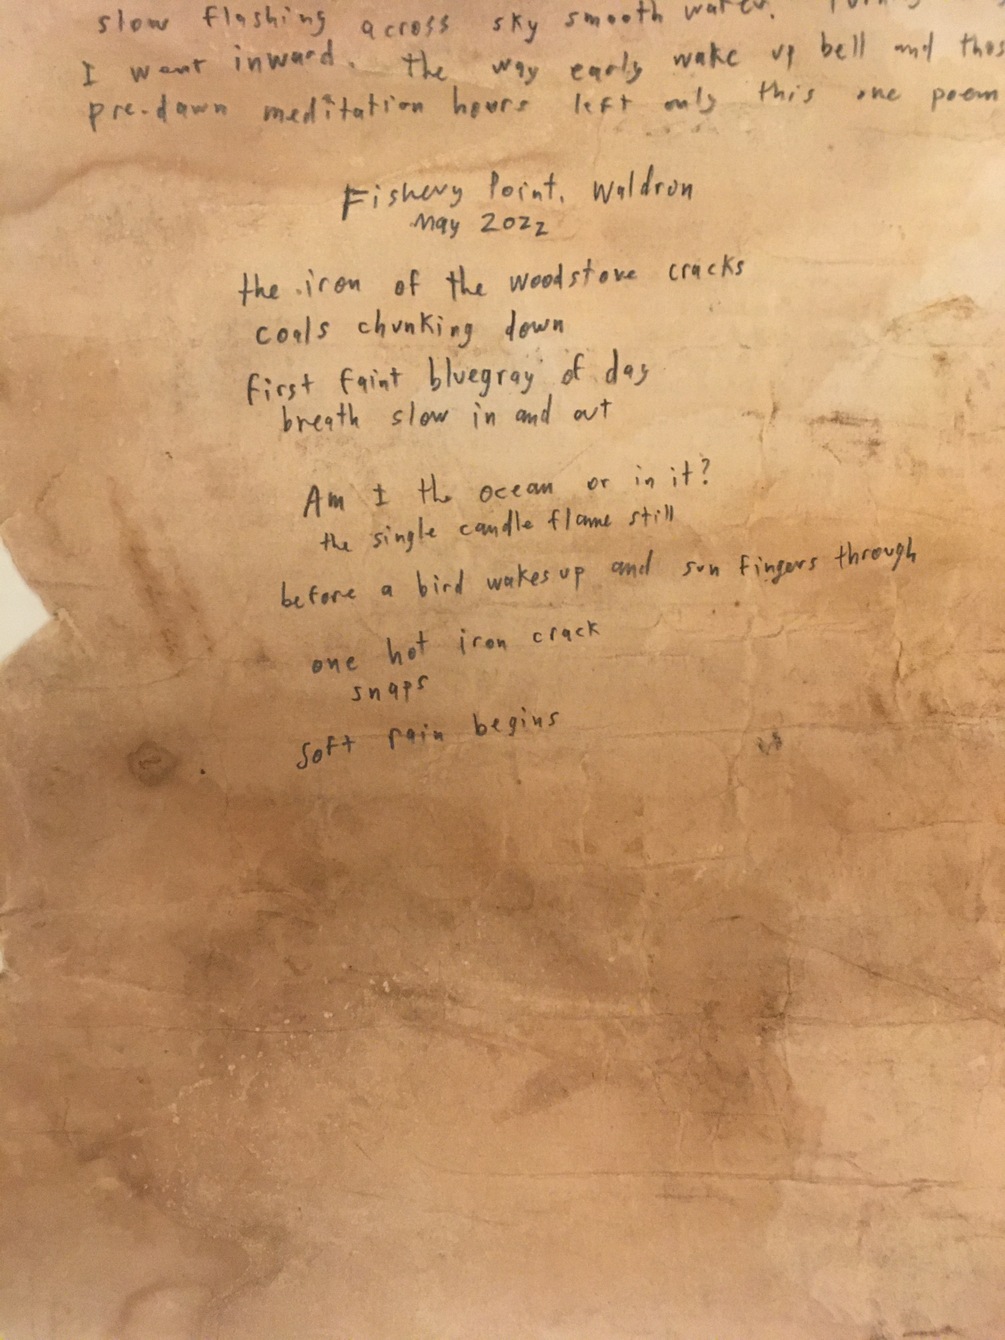 slow flashing across sky smooth water.
I went inward. The way early wake up bell and
pre-dawn meditation hours left only this one poem
Fishery Point, Waldron
May 2022
the iron of the woodstove cracks
coals chunking down
first faint bluegray of day
breath slow in and out
Am I the ocean or in it?
the single candle flame still
before a bird wakes up and sun fingers through
one hot iron crack
snaps
soft rain begins